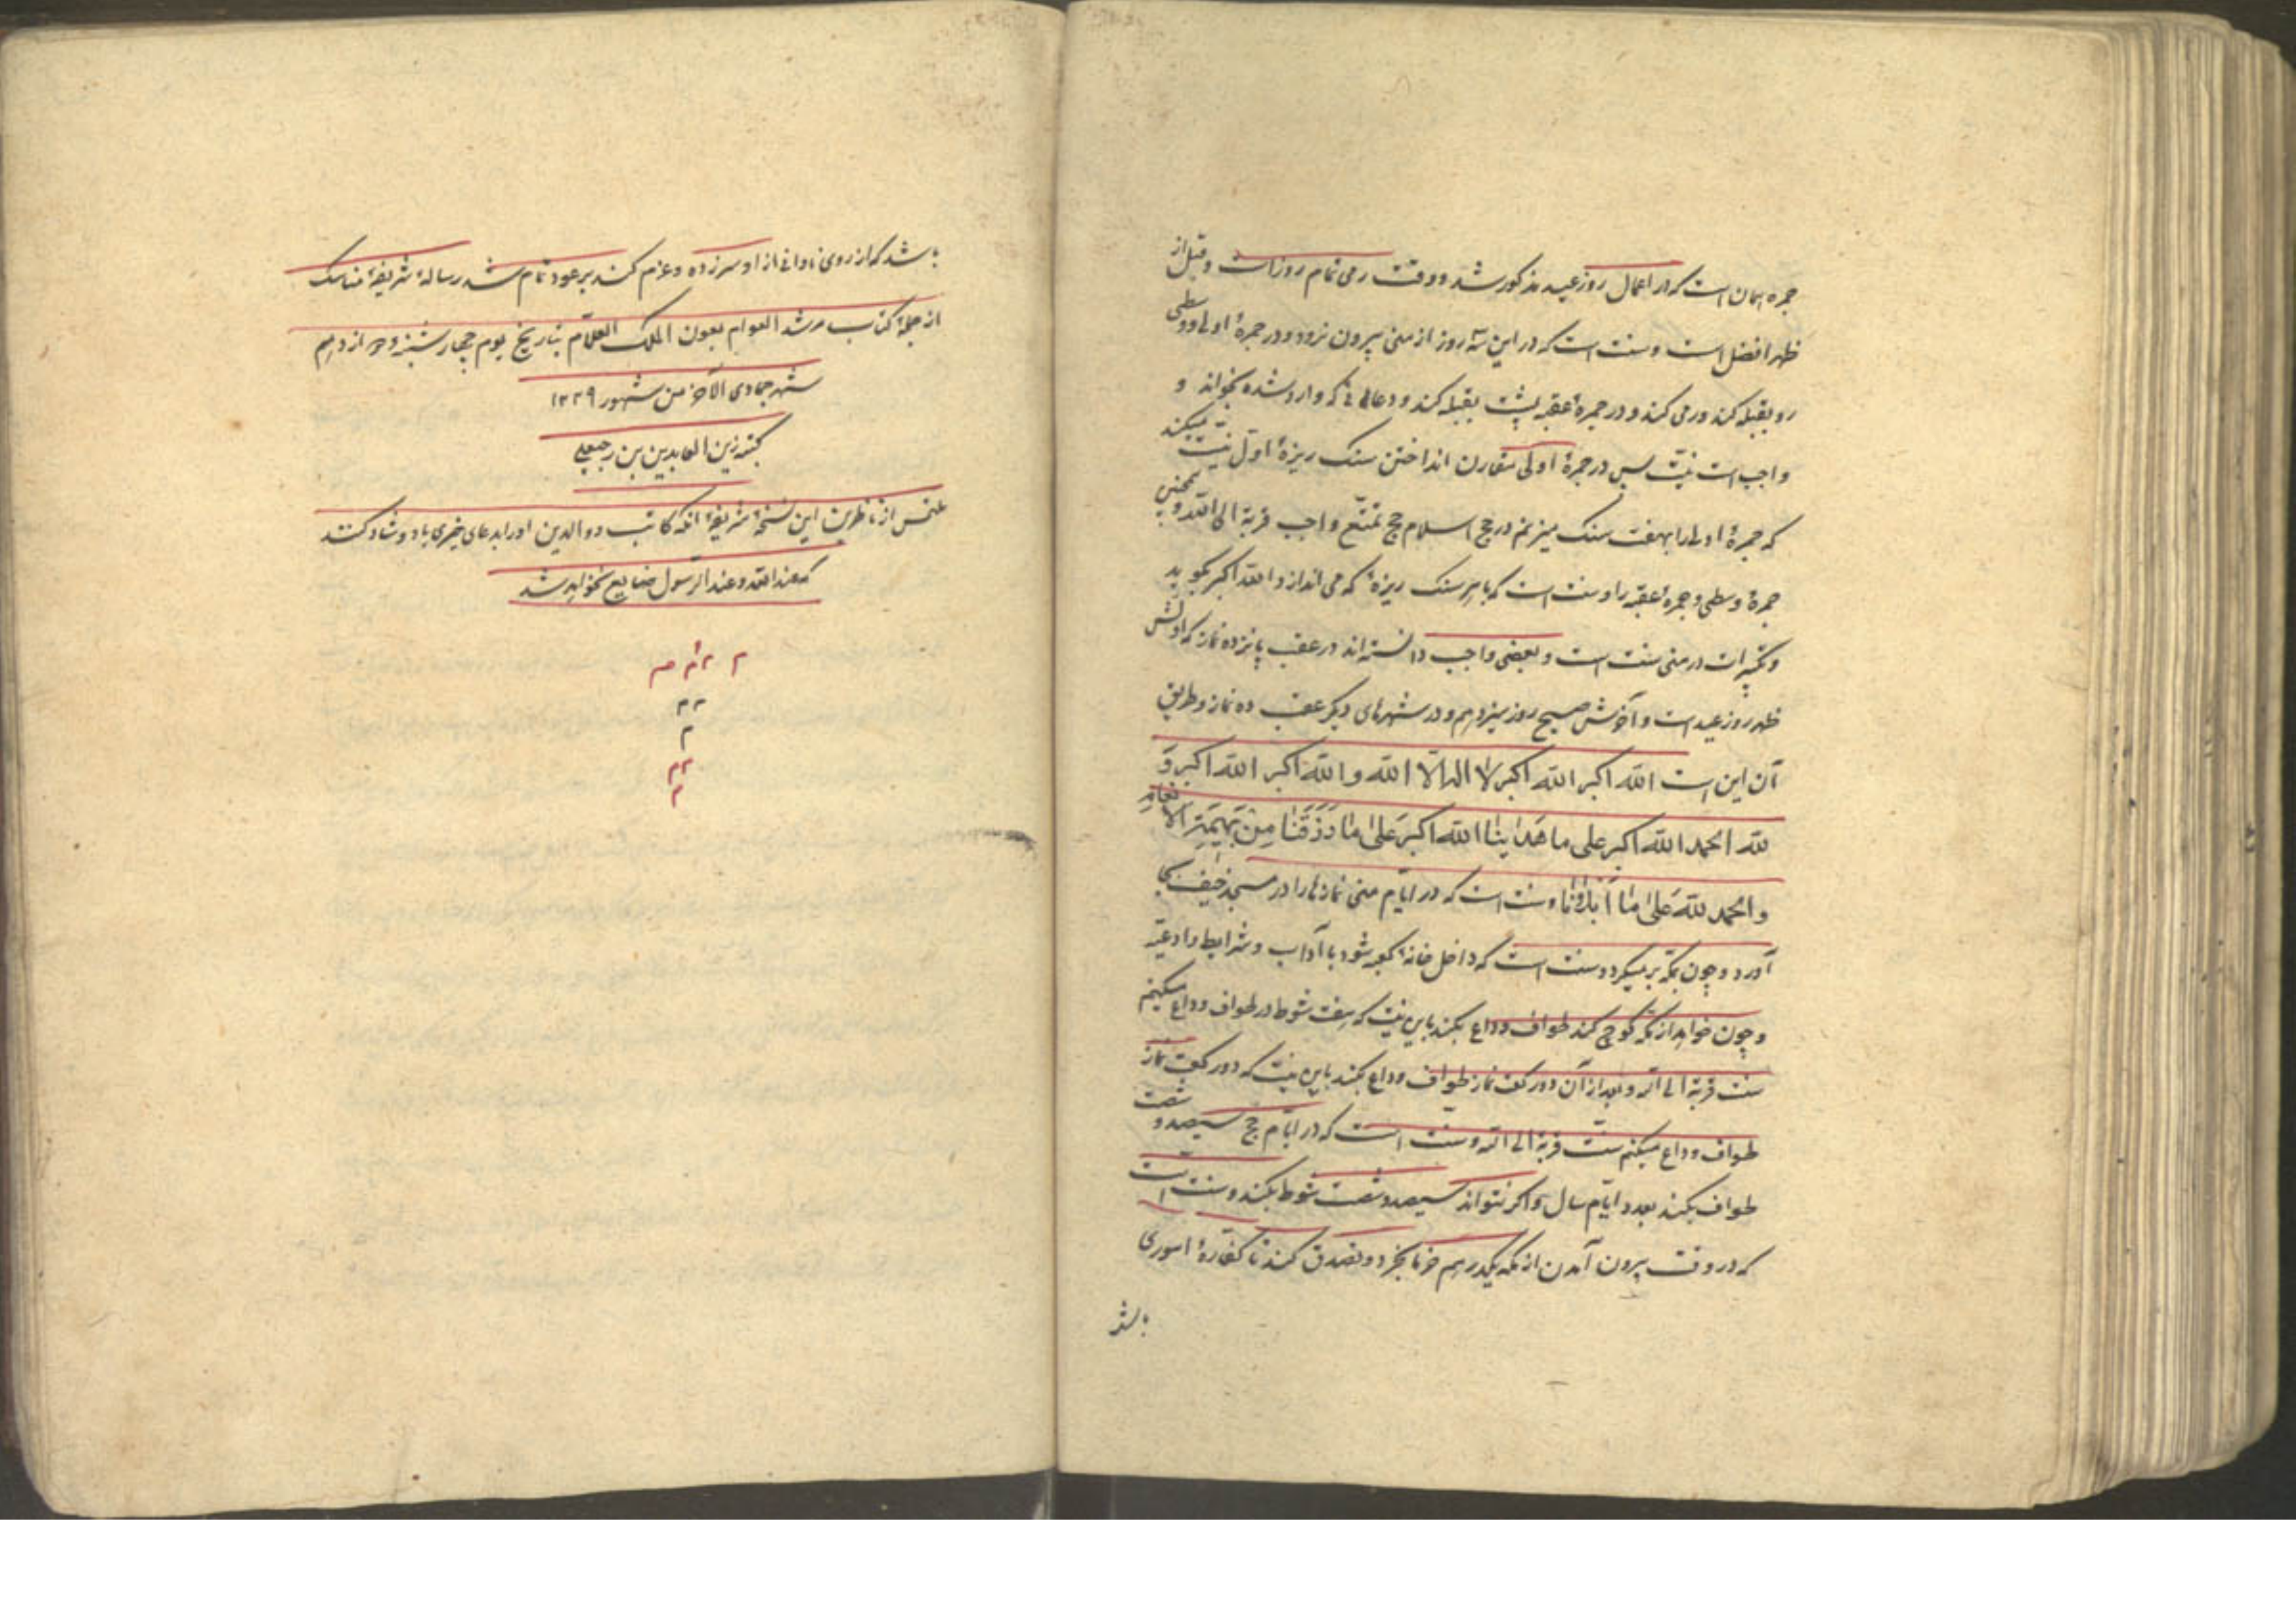 جمره همان است که در اعمال روز عید مذکور شد و وقت رمی تمام روز است و قبل از
ظهر افضل است و سنت است که در این سه روز از منی بیرون نرود و در جمرهٔ اولی و وسطی
رو بقبله کند و رمی کند و در جمرهٔ عقبه پشت بقبله کند و دعائی که وارد شده بخواند و
واجب است نیّت پس در جمرهٔ اولی مقارن انداختن سنک ریزهٔ اول نیّت میکند
که جمرهٔ اولی را بهفت سنک میزنم در حج اسلام حج تمتّع واجب قربة الی الله و همچنین
جمرهٔ وسطی و جمرهٔ عقبه را و سنت است که با هر سنک ریزهٔ که می اندازد الله اکبر بگوید
و تکبیرات در منی سنت است و بعضی واجب دانسته اند در عقب پانزده نماز که اولش
ظهر روز عید است و آخرش صبح روز سیزدهم و در شهرهای دیگر عقب ده نماز و طریق
آن این است الله اکبر الله اکبر لا اله الا الله و الله اکبر الله اکبر و
لله الحمد الله اکبر علی ما هدانا الله اکبر علی ما رزقنا من بهیمة الانعام
و الحمد لله علی ما ابلانا و سنت است که در ایّام منی نمازها را در مسجد خیف بجا
آورد و چون بمکه برمیگردد سنت است که داخل خانهٔ کعبه شود با آداب و شرایط و ادعیه
و چون خواهد از مکه کوچ کند طواف وداع بکند باین نیّت که هفت شوط در طواف وداع میکنم
سنت قربة الی الله و بعد از آن دو رکعت نماز طواف وداع بکند باین نیّت که دو رکعت نماز
طواف وداع میکنم سنّت قربة الی الله و سنت است که در ایّام حج سیصد و شصت
طواف بکند بعدد ایّام سال و اکر نتواند سیصد و شصت شوط بکند و سنت است
که در وقت بیرون آمدن از مکه یکدرهم خرما بخرد و تصدق کند تا کفّارهٔ اموری
باشد
باشد که از روی نادانی از او سر زده و عزم کند بر عود تمام شد رسالهٔ شریفهٔ مناسک
از جملهٔ کتاب مرشد العوام بعون الملک العلّام بتاریخ یوم چهارشنبه دوازدهم
شهر جمادی الآخر من شهور ۱۲۳۹
کتبه زین العابدین بن رجبعلی
ملتمس از ناظرین این نسخهٔ شریفهٔ آنکه کاتب و والدین او را بدعای خیری یاد و شاد کنند
که عند الله و عند الرسول ضایع نخواهد شد